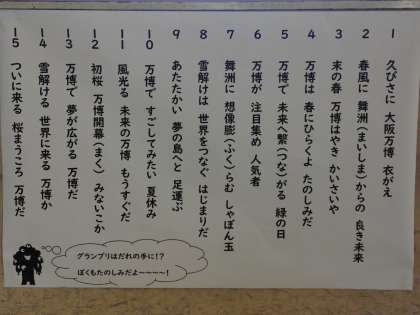 1 久びさに 大阪万博 衣がえ
2 春風に 舞洲(まいしま)からの 良き未来
3 末の春 万博はやき かいさいや
4 万博は 春にひらくよ たのしみだ
5 万博で 未来へ繋(つな)がる 緑の日
6 万博が 注目集め 人気者
7 舞洲に 想像膨(ふく)らむ しゃぼん玉
8 雪解けは 世界をつなぐ はじまりだ
9 あたたかい 夢の島へと 足運ぶ
10 万博で すごしてみたい 夏休み
11 風光る 未来の万博 もうすぐだ
12 初桜 万博開幕(まく) みないこか
13 万博で 夢が広がる 万博だ
14 雪解ける 世界に来る 万博か
15 ついに来る 桜まうころ 万博だ
グランプリはだれの手に!?
ぼくもたのしみだよ~~~~!